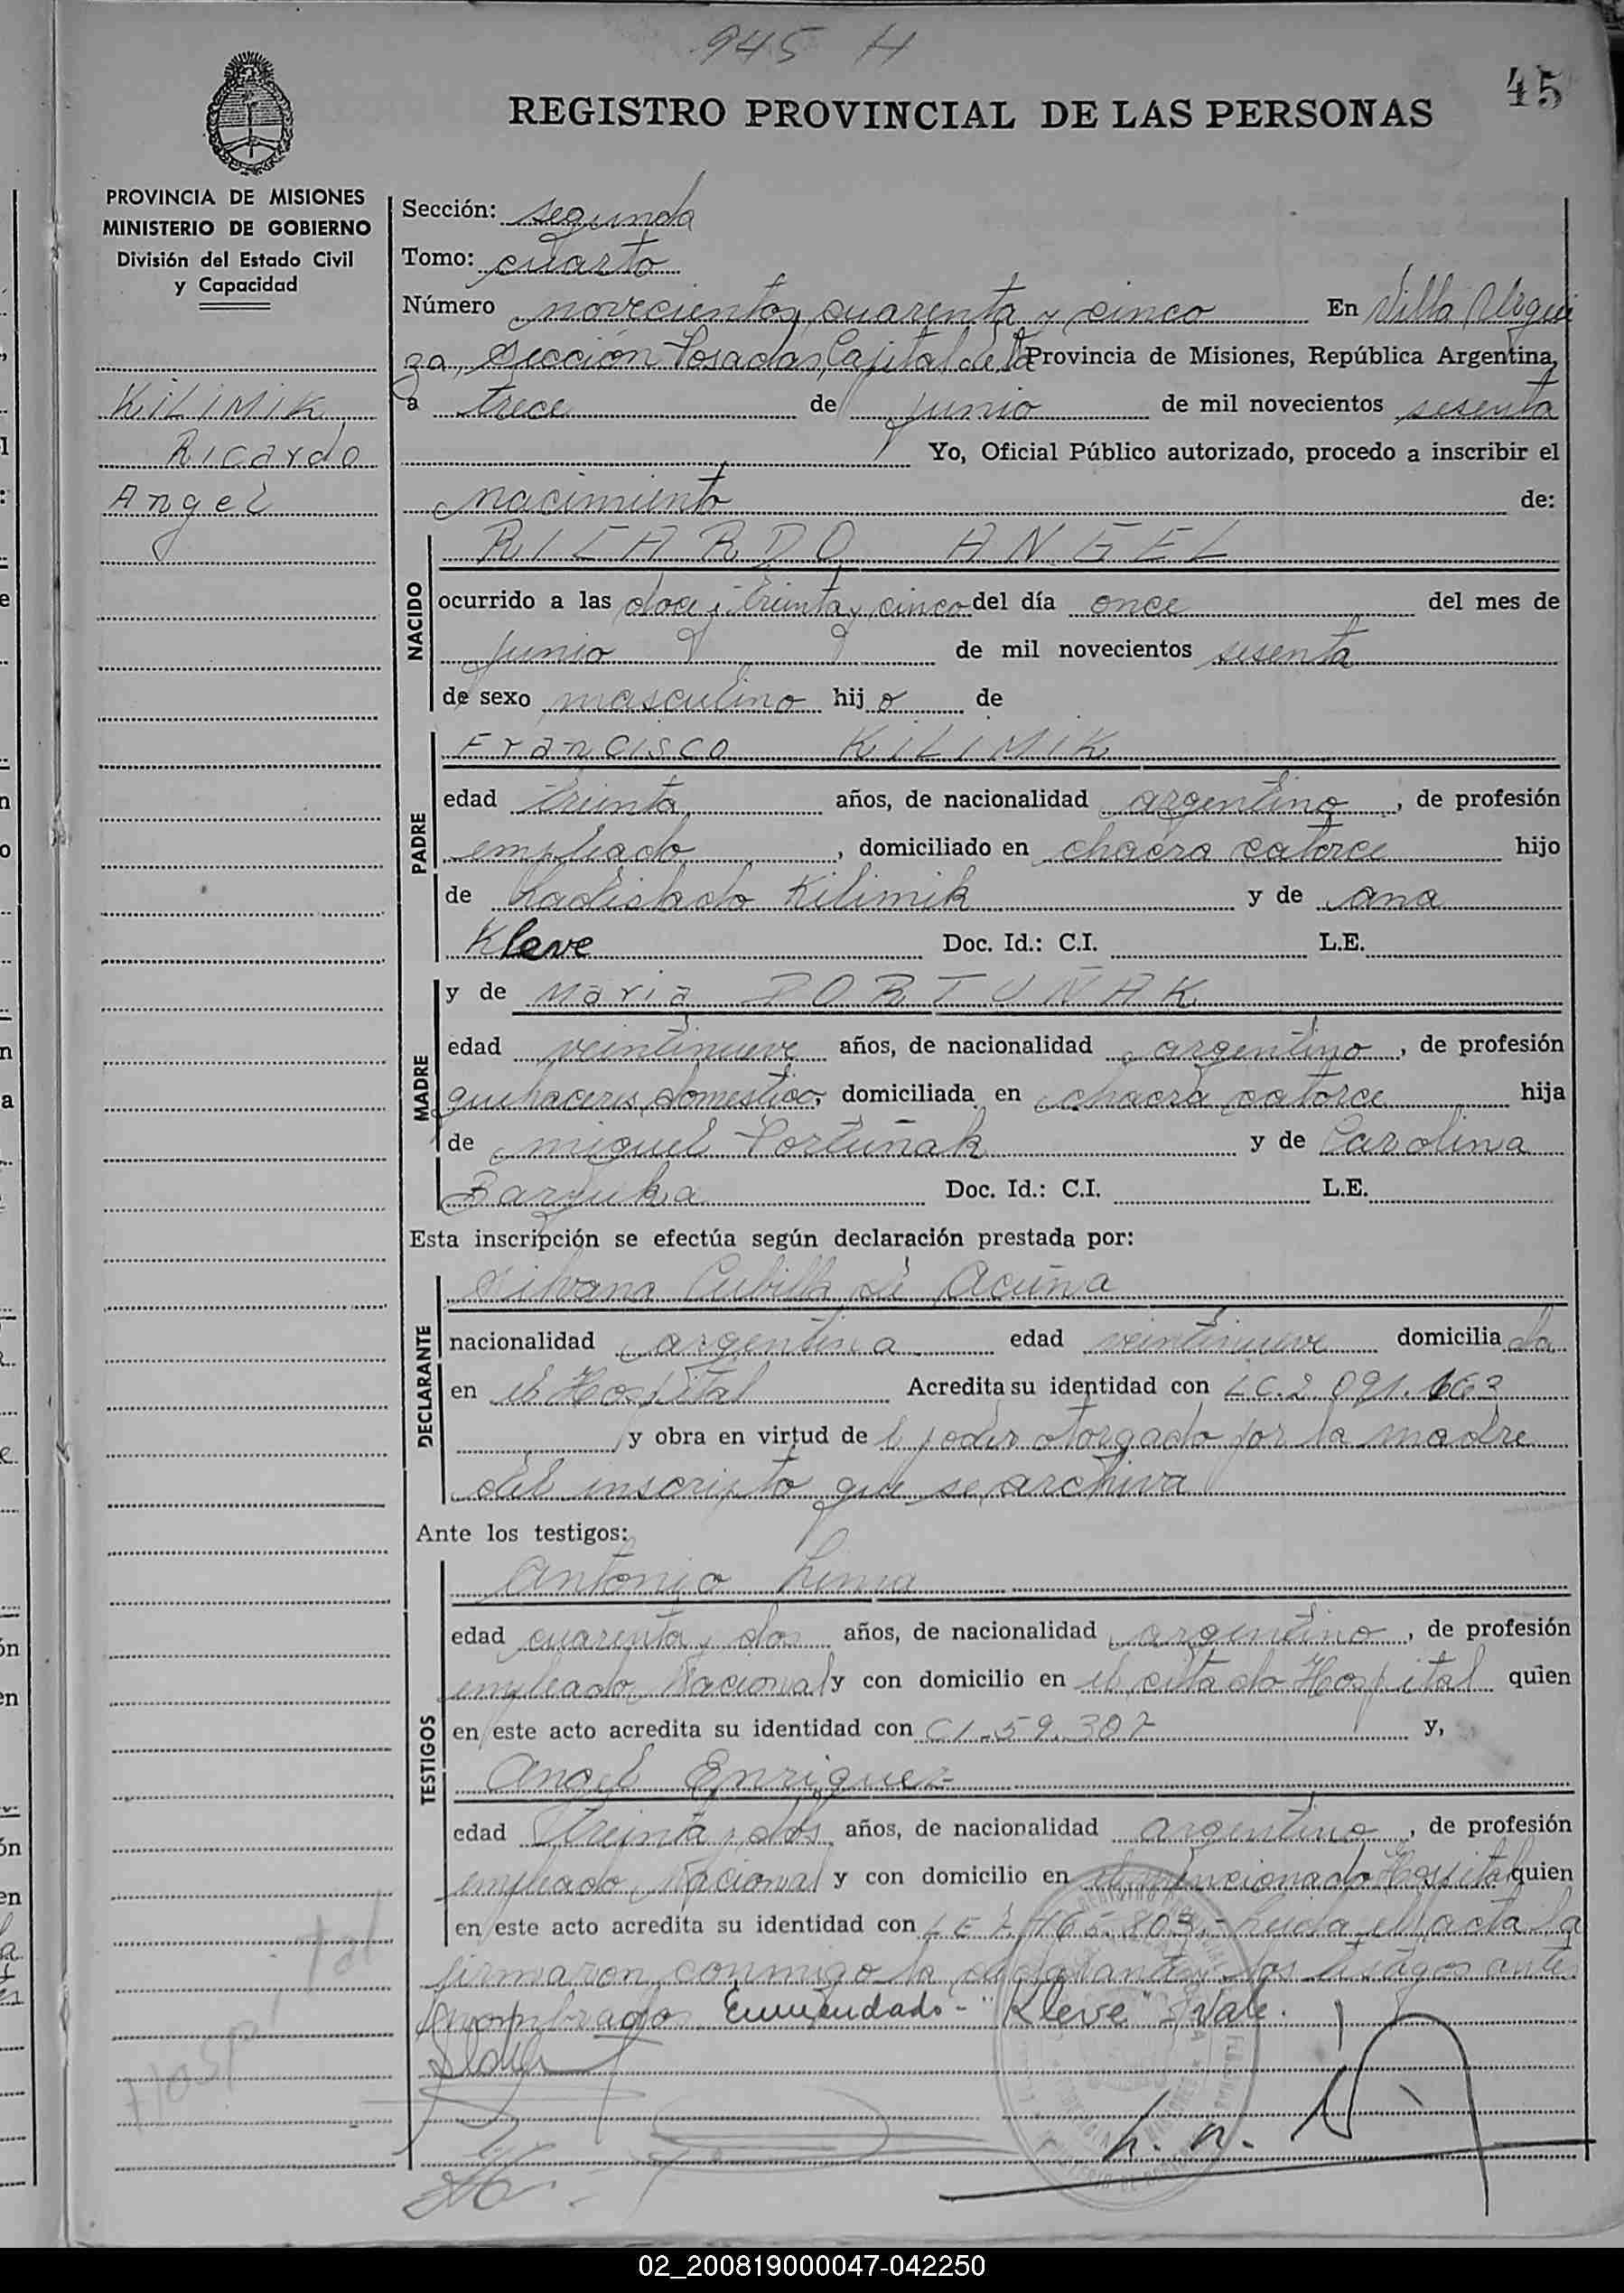 945 H
45
REGISTRO PROVINCIAL DE LAS PERSONAS
PROVINCIA DE MISIONES
MINISTERIO DE GOBIERNO
División del Estado Civil
y Capacidad
KiLiMiK
Ricardo
Angel
Sección: segunda
Tomo: cuarto
Número novecientos cuarenta y cinco En Villa Urqui
za, Sección Posadas, Capital de la Provincia de Misiones, República Argentina,
a trece de junio de mil novecientos sesenta
Yo, Oficial Público autorizado, procedo a inscribir el
nacimiento de:
NACIDO
RICARDO ANGEL
ocurrido a las doce y treinta y cinco del día once del mes de
junio de mil novecientos sesenta
de sexo masculino hijo de
PADRE
Francisco KiLiMiK
edad treinta años, de nacionalidad argentino, de profesión
empleado, domiciliado en chacra catorce hijo
de Ladislado Kilimik y de Ana
Kleve Doc. Id.: C.I. L.E.
MADRE
y de Maria PORTUÑAK
edad veintinueve años, de nacionalidad argentino, de profesión
quehaceres domestico, domiciliada en chacra catorce hija
de Miguel Portuñak y de Carolina
Doc. Id.: C.I. L.E.
Esta inscripción se efectúa según declaración prestada por:
DECLARANTE
Silvana Cubilla de Acuña
nacionalidad argentina edad veintinueve domiciliada
en el Hospital Acredita su identidad con LC. 2 091.663
y obra en virtud del poder otorgado por la madre
del inscripto que se archiva
Ante los testigos:
TESTIGOS
Antonio Lima
edad cuarenta y dos años, de nacionalidad argentino, de profesión
empleado Nacional y con domicilio en el citado Hospital quien
en este acto acredita su identidad con CI-59.307 y,
Angel Enriquez
edad treinta y dos años, de nacionalidad argentino, de profesión
empleado Nacional y con domicilio en el mencionado Hospital quien
en este acto acredita su identidad con LE 7.465.803.- Leida el acta la
firmaron conmigo la declarante y los testigos antes
nombrados. Enmendado - "Kleve" - Vale.
02_200819000047-042250